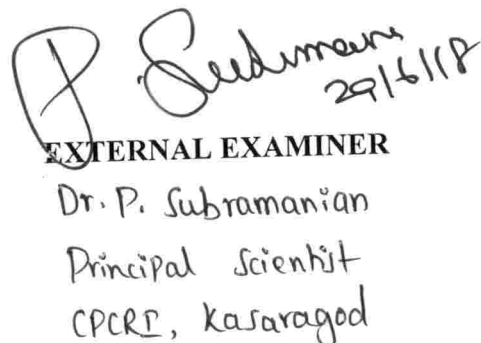 29/6/18
EXTERNAL EXAMINER
Dr. P. Subramanian
Principal Scientist
CPCRI, Kasaragod